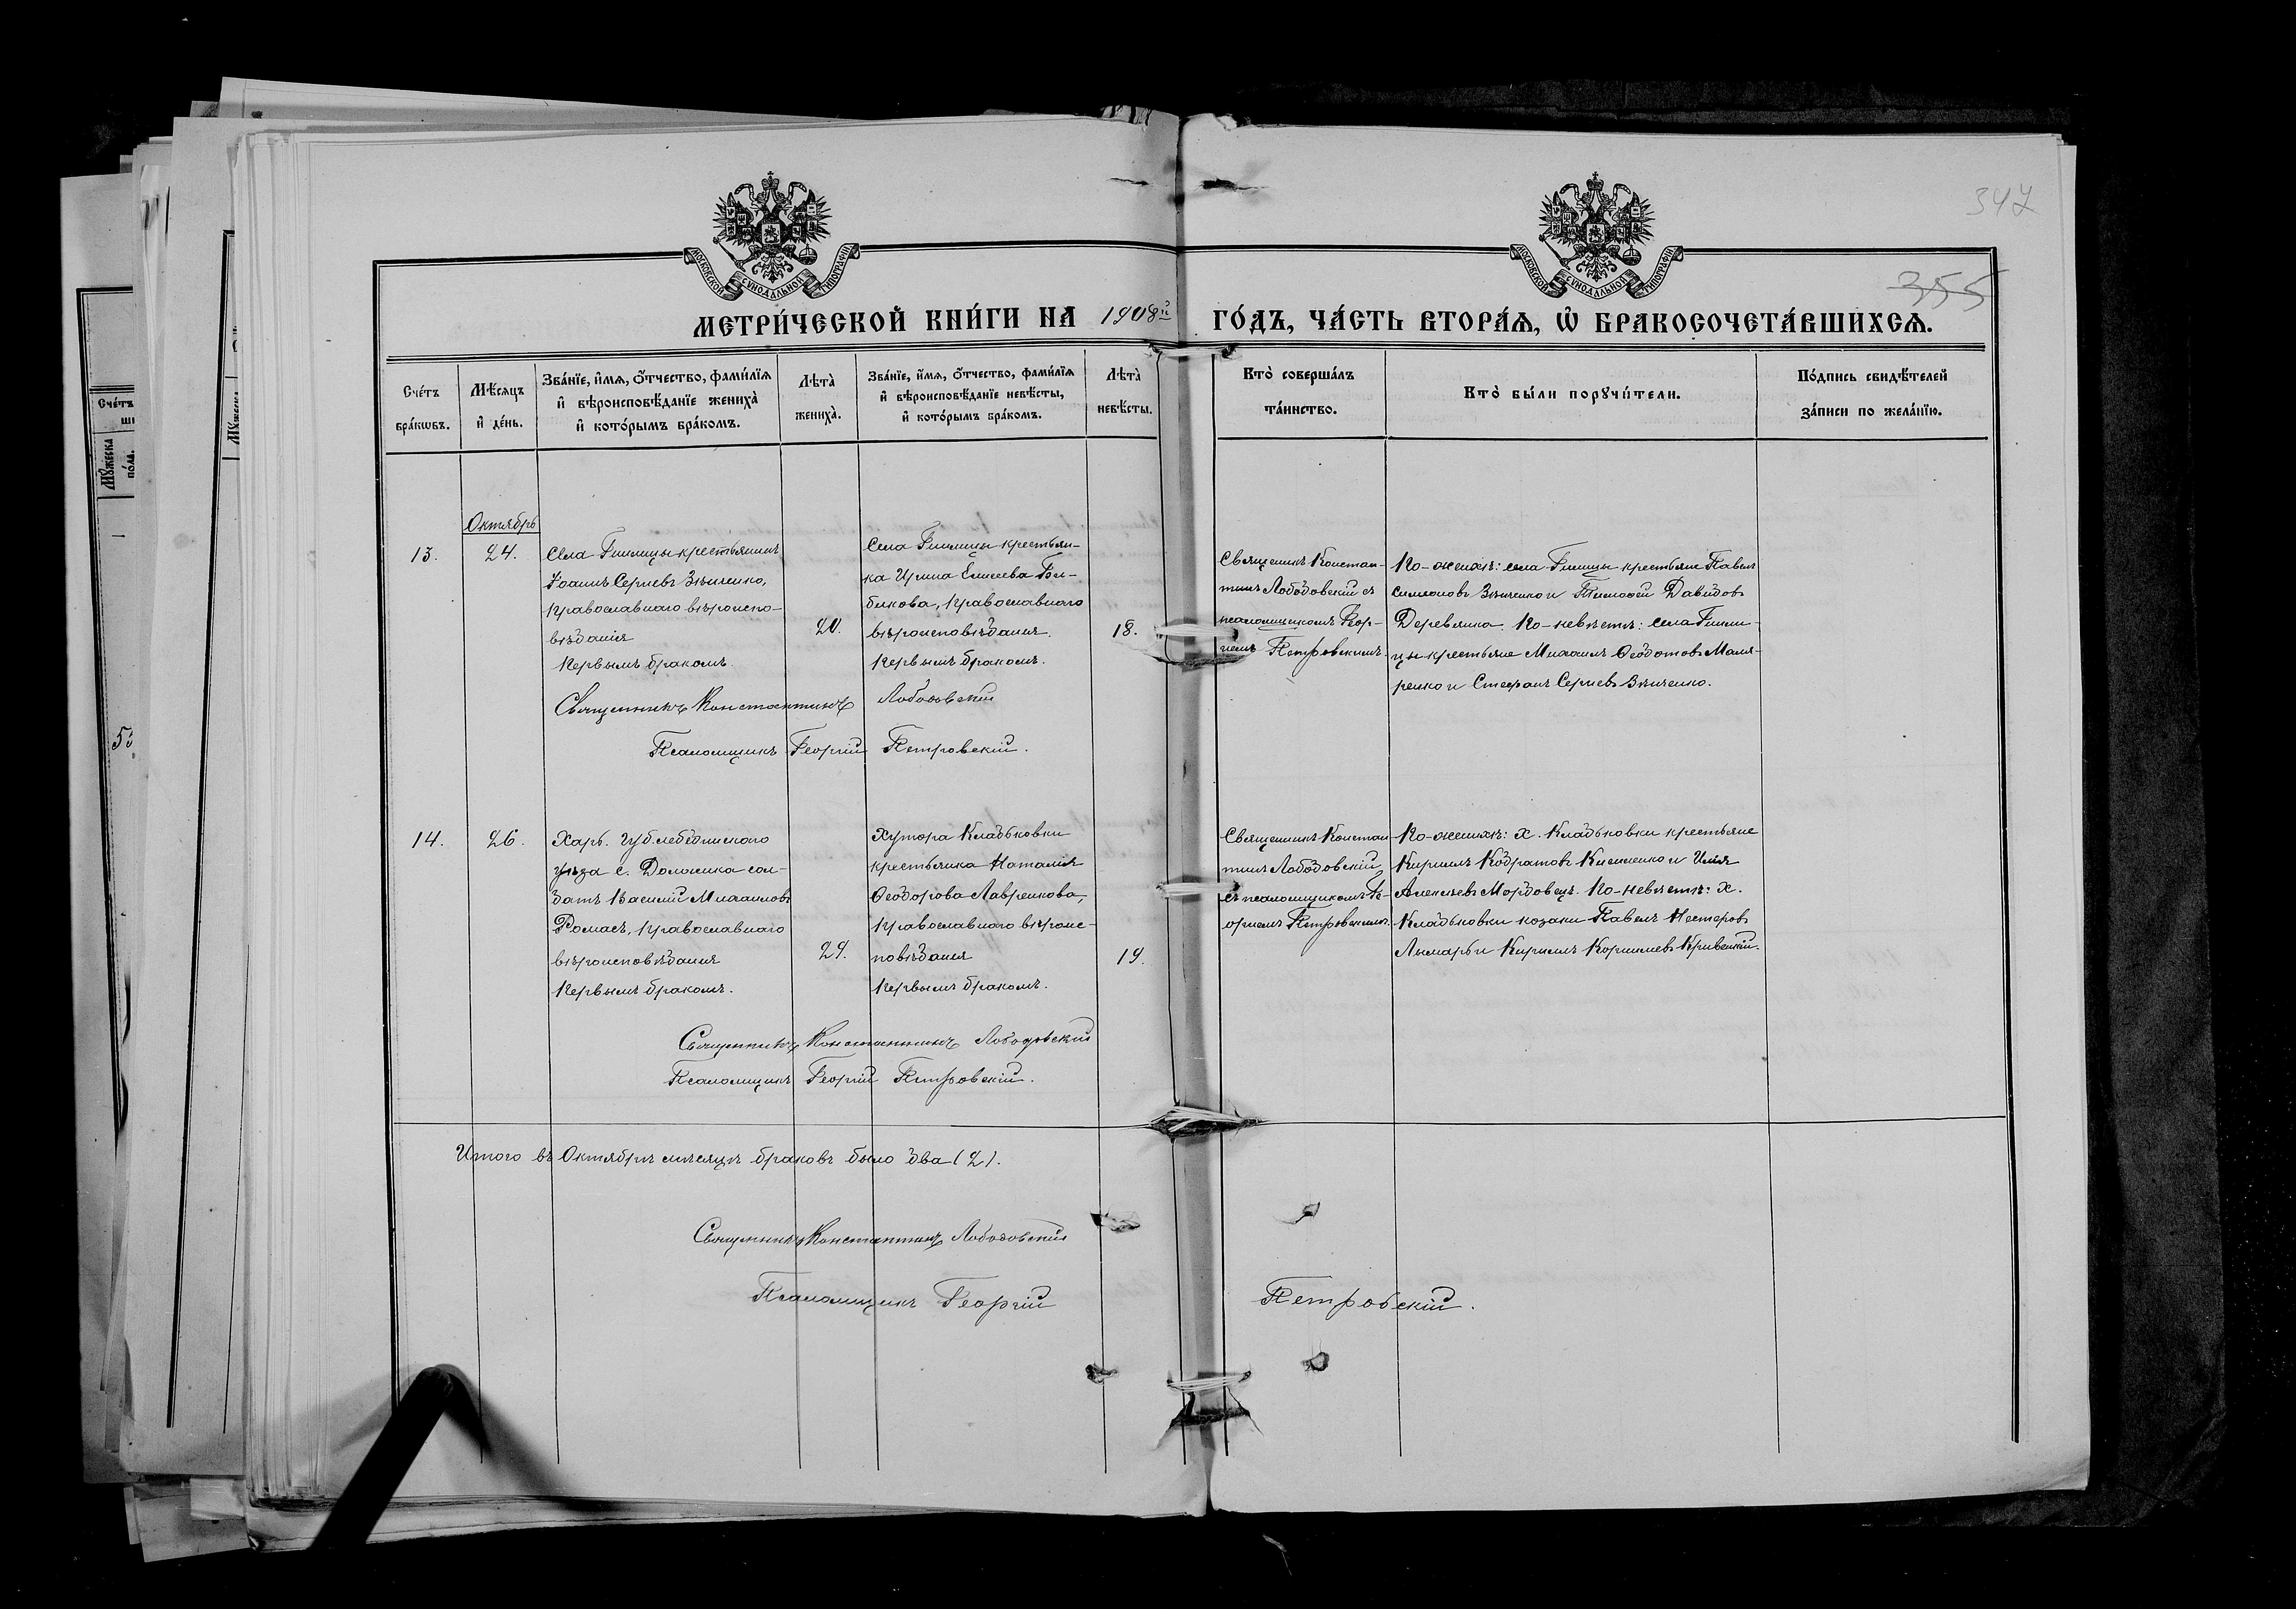 347
355
МОСКОВСКОЙ СУНОДАЛЬНОЙ ТИПОГРАФІИ
МОСКОВСКОЙ СУНОДАЛЬНОЙ ТИПОГРАФІИ
МЕТРИ́ЧЕСКОЙ КНИ́ГИ НА 1908й ГО́ДЪ, ЧА́СТЬ ВТОРА́Ѧ, Ѽ БРАКОСОЧЕТА́ВШИХСѦ.
Сче́тъ бра́кѡвъ.
Мѣ́сѧцъ и҆ де́нь.
Зва́нїе, и҆́мѧ, ѻ҆́тчество, фами́лїѧ
и҆ вѣроисповѣ́данїе жениха̀
и҆ кото́рымъ бра́комъ.
Лѣта̀ жениха̀.
Зва́нїе, и҆́мѧ, ѻ҆́тчество, фами́лїѧ
и҆ вѣроисповѣ́данїе невѣ́сты,
и҆ кото́рымъ бра́комъ.
Лѣта̀ невѣ́сты.
Кто̀ соверша́лъ
та́инство.
Кто̀ бы́ли порꙋчи́тели.
По́дпись свидѣ́телей
за́писи по жела́нїю.
Октябрь
13.
24.
Села Гнилицы крестьянинъ
Іоаннъ Сергіевъ Зѣнченко,
православнаго вѣроиспо-
вѣданія
Первымъ бракомъ.
20.
Села Гнилицы крестьян-
ка Ирина Елисеева
бикова, православнаго
вѣроисповѣданія.
Первымъ бракомъ.
18.
Священникъ Констан-
тинъ Лободовскій съ
псаломщикомъ Геор-
гіемъ Петровскимъ.
По-женихѣ: села Гнилицы крестьяне Павелъ
Симеоновъ Зѣнченко и Тимоѳей Давидовъ
Деревянка. По-невѣстѣ: села Гнили-
цы крестьяне Михаилъ Ѳеодотовъ Маля-
ренко и Стефанъ Сергіевъ Зѣнченко.
Священникъ Константинъ Лободовскій
Псаломщикъ Георгій Петровскій.
14.
26.
Харь. губ. лебединскаго
уѣзда с. сол-
датъ Василій Михаиловъ
Ромасъ, православнаго
вѣроисповѣданія
Первымъ бракомъ.
29.
Хутора Кладьковки
крестьянка Наталія
Ѳеодорова Лавренкова,
православнаго вѣроис-
повѣданія
Первымъ бракомъ.
19.
Священникъ Констан
тинъ Лободовскій
съ псаломщикомъ Ге-
оргіемъ Петровскимъ.
По-женихѣ: х. Кладьковки крестьяне
Кириллъ Кодратовъ и Илія
Алексѣевъ Мордовецъ. По-невѣстѣ: х.
Кладьковки козаки Павелъ Нестеровъ
Лымарь и Кириллъ Корниліевъ
Священникъ Константинъ Лободовскій
Псаломщикъ Георгій Петровскій.
Итого въ Октябрѣ мѣсяцѣ браковъ было два (2).
Священникъ Константинъ Лободовскій
Псаломщикъ Георгій Петровскій.